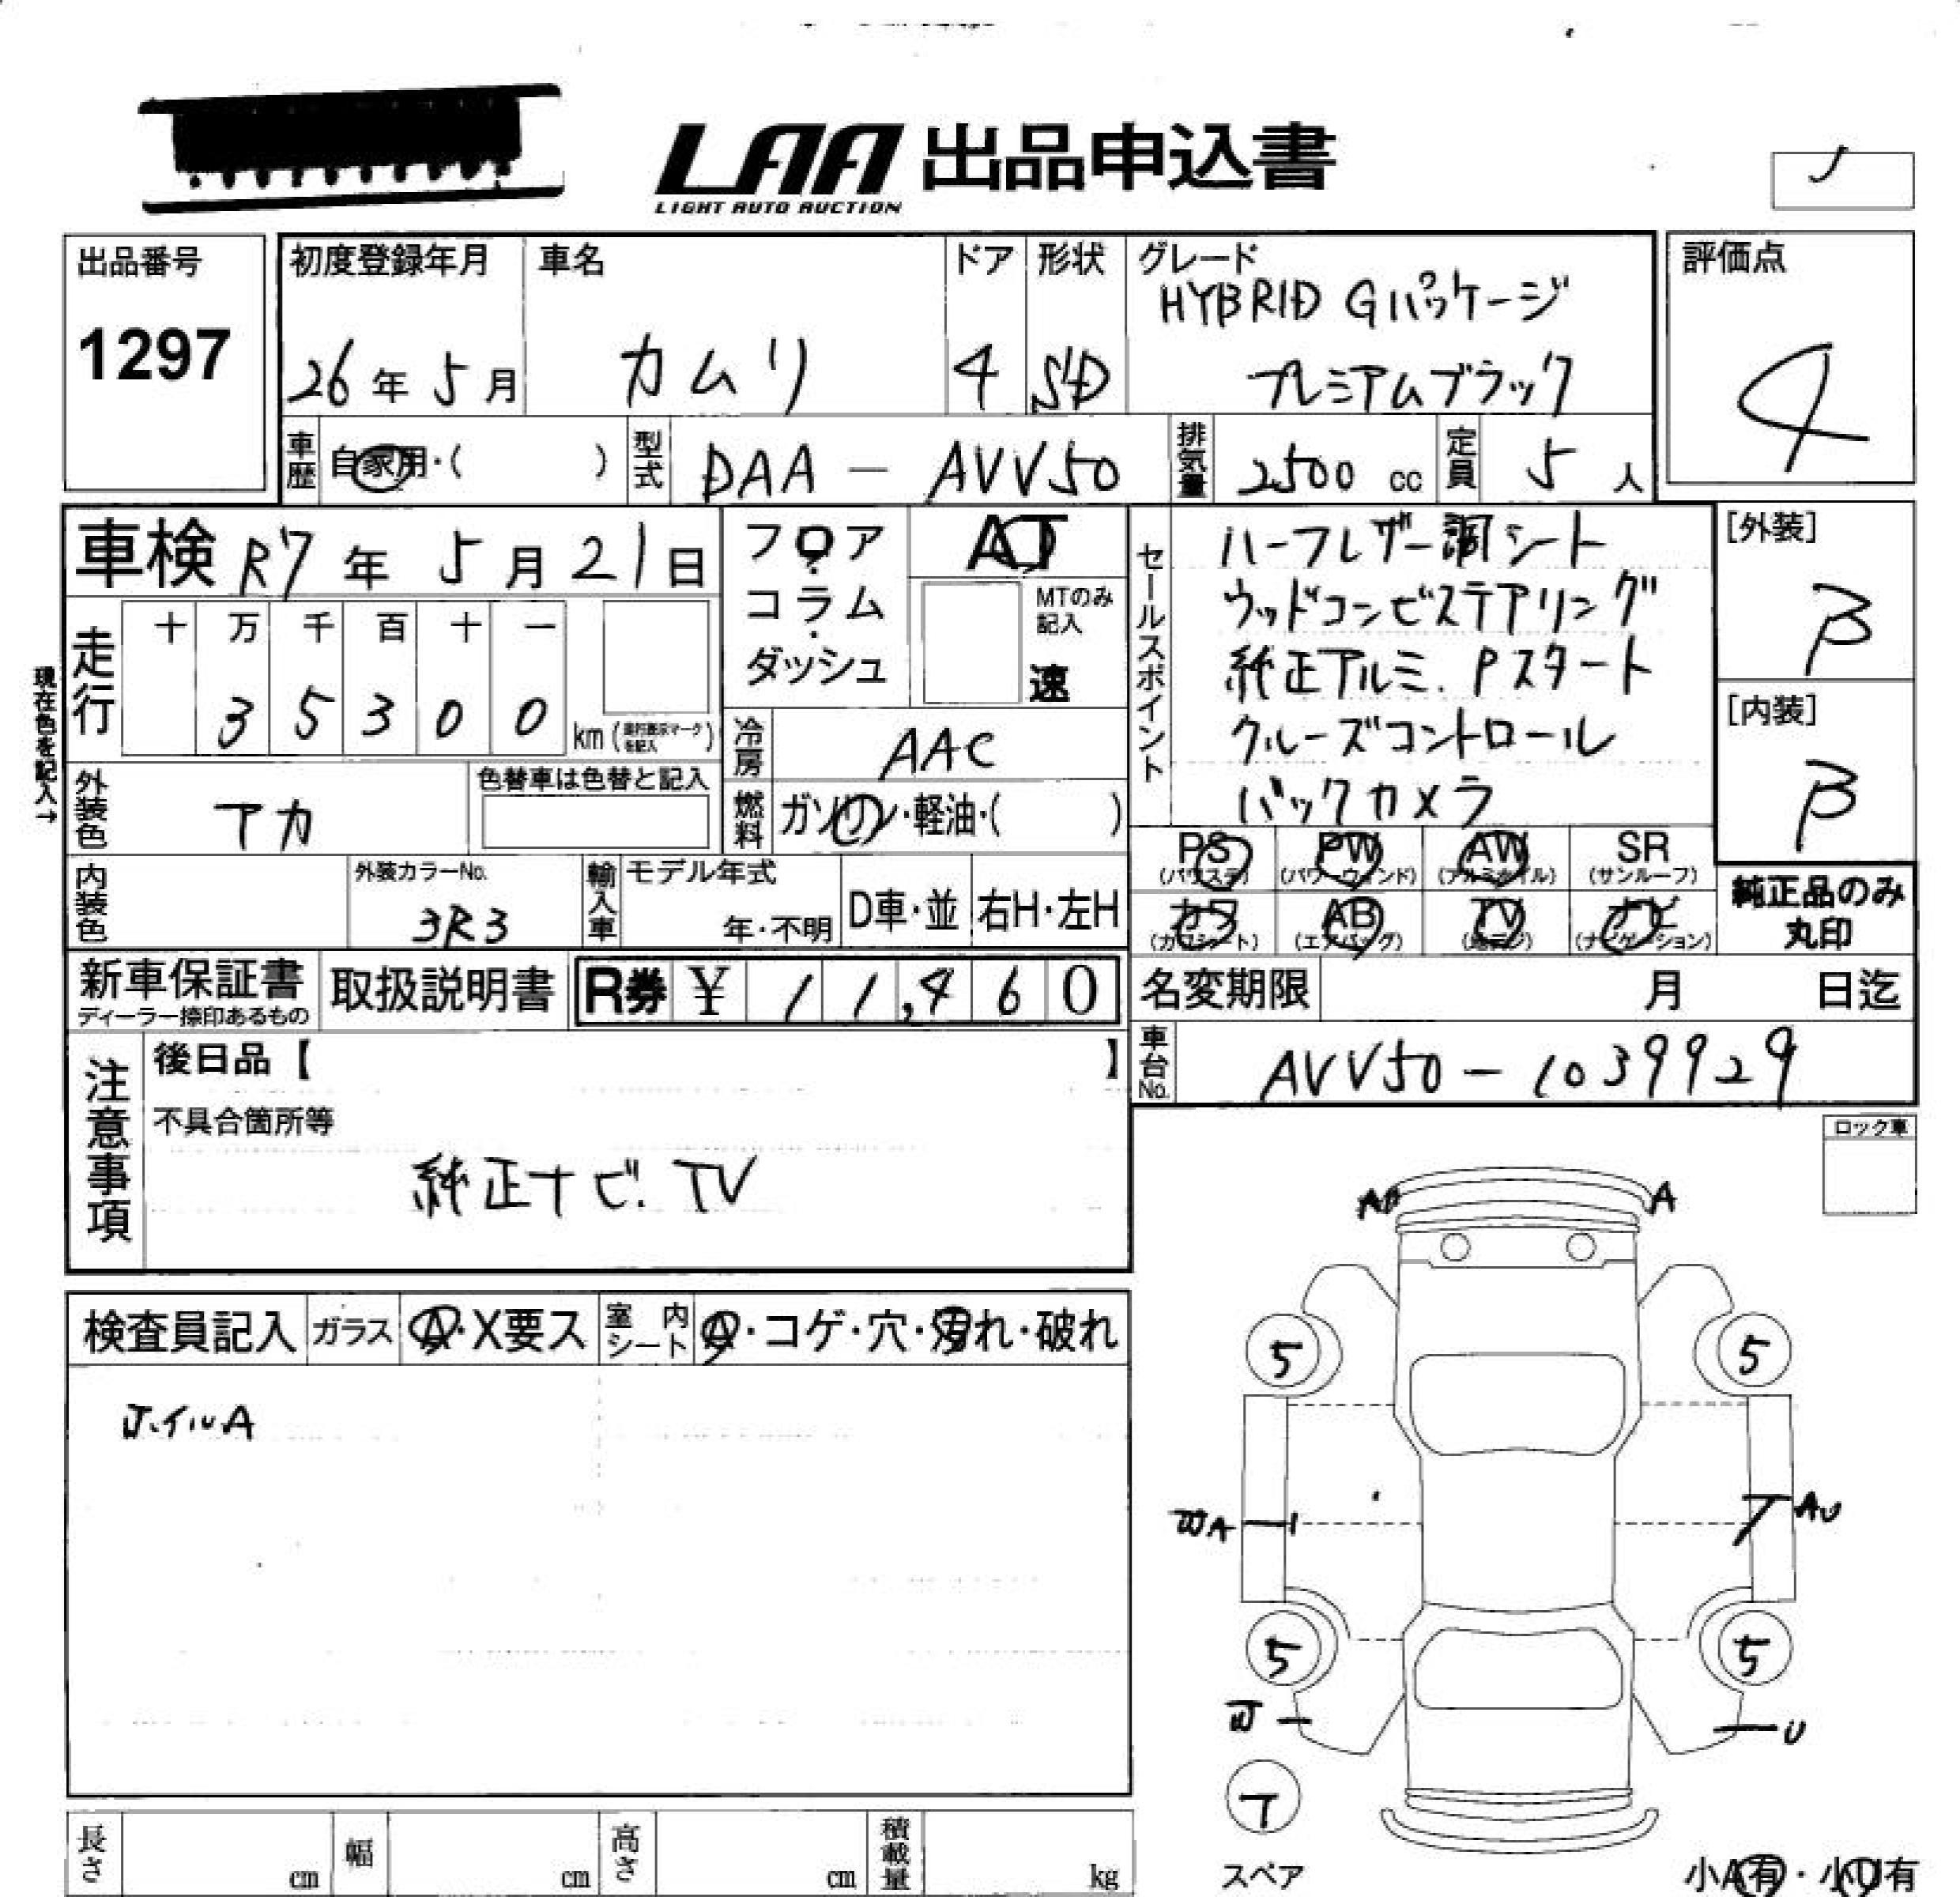 LAA 出品申込書
LIGHT AUTO AUCTION
出品番号
1297
初度登録年月
26年 5月
車名
カムリ
ドア
4
形状
SD
グレード
HYBRID Gパッケージ
プレミアムブラック
評価点
4
車歴
自家用・( )
型式
DAA - AVV50
排気量
2500 cc
定員
5 人
車検 R7年 5月21日
フロア
・
コラム
・
ダッシュ
AT
MTのみ
記入
速
走行
十 万 千 百 十 一
3 5 3 0 0
km(走行表示マークを記入)
現在色を記入→
外装色
アカ
色替車は色替と記入
冷房
AAC
燃料
ガソリン・軽油・( )
内装色
外装カラーNo.
3R3
輸入車
モデル年式
年・不明
D車・並
右H・左H
セールスポイント
ハーフレザー調シート
ウッドコンビステアリング
純正アルミ. Pスタート
クルーズコントロール
バックカメラ
[外装]
B
[内装]
B
PS PW AW SR
(パワステ) (パワーウィンド) (アルミホイル) (サンルーフ)
カワ AB TV ナビ
(カワシート) (エアバッグ) (地デジ) (ナビゲーション)
純正品のみ
丸印
新車保証書
ディーラー捺印あるもの
取扱説明書
R券 ¥ 11,460
名変期限 月 日迄
車台No.
AVV50-1039929
注意事項
後日品【 】
不具合箇所等
純正ナビ. TV
ロック車
検査員記入
ガラス
A・X要ス
室内シート
A・コゲ・穴・汚れ・破れ
A
A
5
5
A
AU
5
5
U
スペア
小A有・小U有
長さ cm
幅 cm
高さ cm
積載量 kg